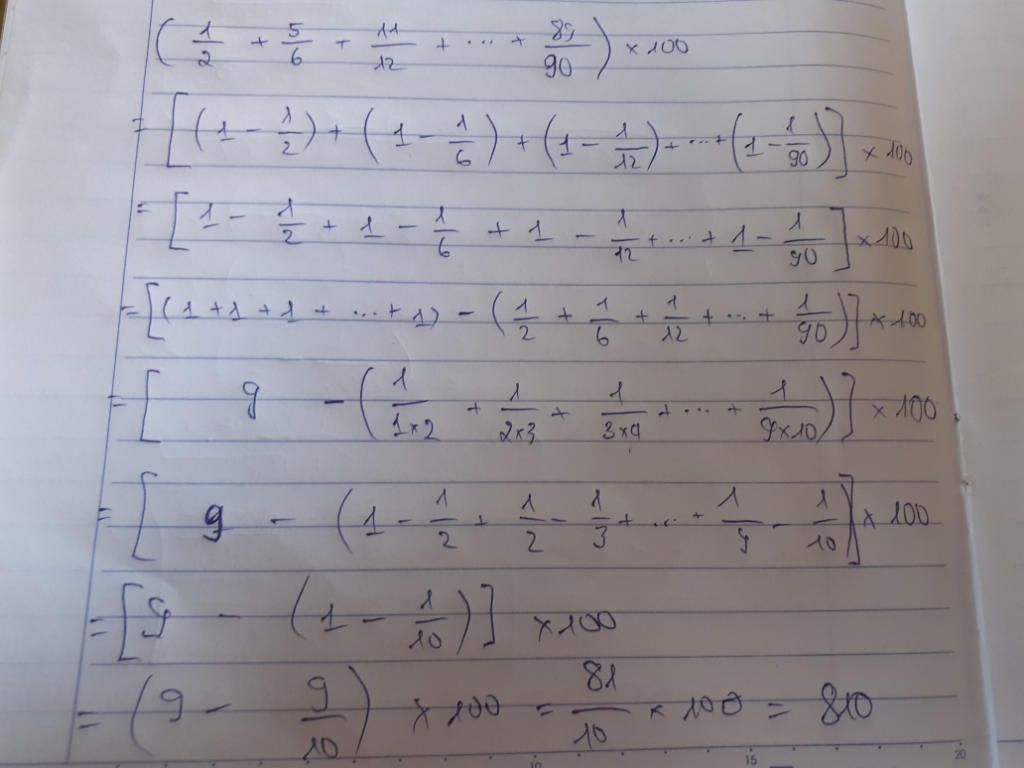 ( 1/2 + 5/6 + 11/12 + ... + 89/90 ) × 100
= [ ( 1 - 1/2 ) + ( 1 - 1/6 ) + ( 1 - 1/12 ) + ... + ( 1 - 1/90 ) ] × 100
= [ 1 - 1/2 + 1 - 1/6 + 1 - 1/12 + ... + 1 - 1/90 ] × 100
= [ ( 1 + 1 + 1 + ... + 1 ) - ( 1/2 + 1/6 + 1/12 + ... + 1/90 ) ] × 100
= [ 9 - ( 1/1×2 + 1/2×3 + 1/3×4 + ... + 1/9×10 ) ] × 100
= [ 9 - ( 1 - 1/2 + 1/2 - 1/3 + ... + 1/9 - 1/10 ) ] × 100
= [ 9 - ( 1 - 1/10 ) ] × 100
= ( 9 - 9/10 ) × 100 = 81/10 × 100 = 810
10 15 20